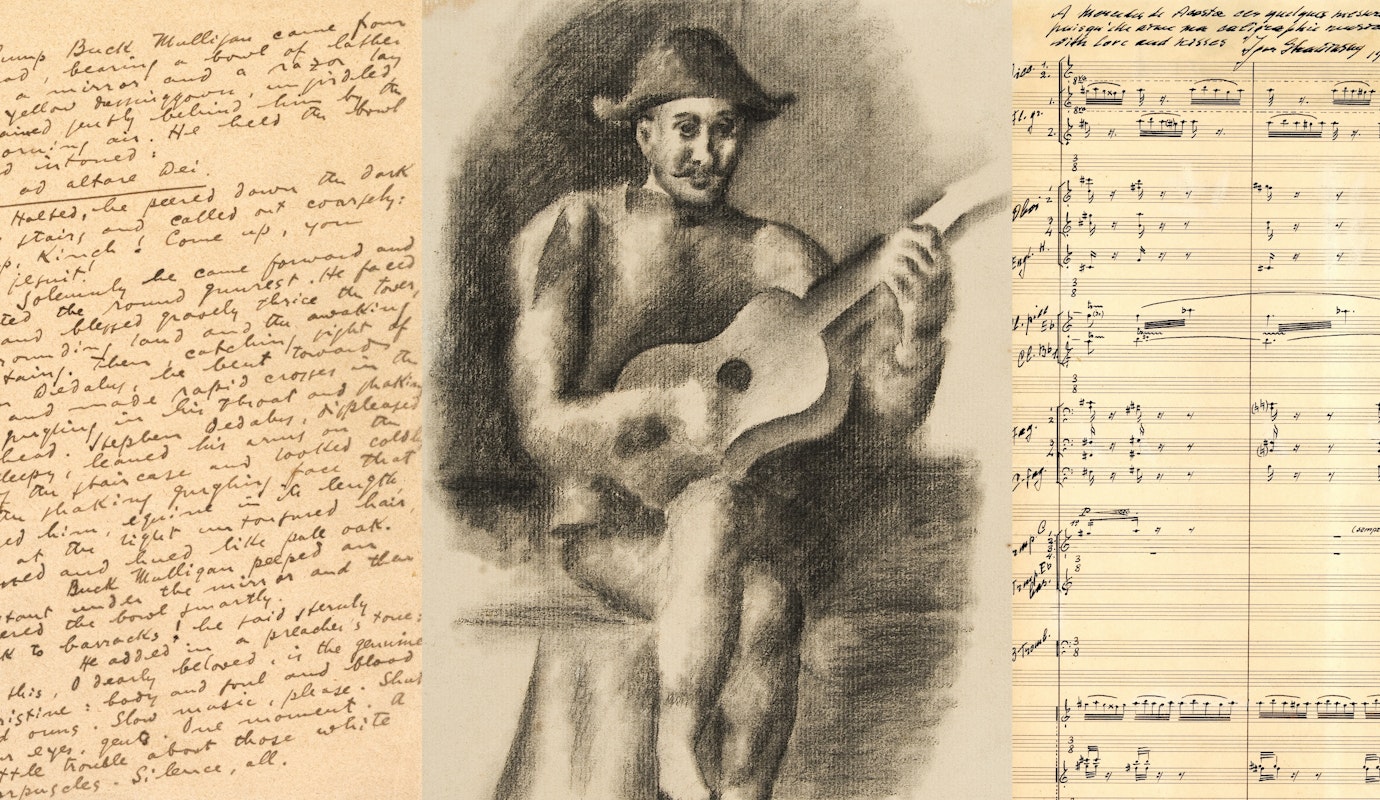 ump Buck Mulligan came from
ad, bearing a bowl of lather
a mirror and a razor lay
yellow dressinggown, ungirdled,
ained gently behind him by the
orning air. He held the bowl
d intoned:
ad altare Dei.
Halted, he peered down the dark
stairs and called out coarsely:
p, Kinch! Come up, you
jesuit!
Solemnly he came forward and
ted the round gunrest. He faced
and blessed gravely thrice the tower,
rounding land and the awaking
tains. Then, catching sight of
Dedalus, he bent towards the
and made rapid crosses in the
gurgling in his throat and shaking
head. Stephen Dedalus, displeased
leepy, leaned his arms on the
f the staircase and looked coldly
the shaking gurgling face that
ed him, equine in its length
at the light untonsured hair,
ned and hued like pale oak.
Buck Mulligan peeped an
stant under the mirror and then
ered the bowl smartly.
k to barracks! he said sternly
He added in a preacher's tone:
this, O dearly beloved, is the genuine
ristine: body and soul and blood
d ouns. Slow music, please. Shut
r eyes, gents. One moment. A
ttle trouble about those white
rpuscles. Silence, all.
A Mercedes de Acosta ces quelques mesures
puisqu'elle aime ma
with love and kisses Igor Stravinsky 19
icc. 1. 2.
8va
1.
Fl. gr.
8va
2.
3 8
Oboi 1 2
3 4
Ingl.
3 8
l. picc Eb
Cl. Bb
3 8
Fag. 1 2
3
. fag
C
3 8
Eb
bas.
3 Tromb.
3 8
3 8